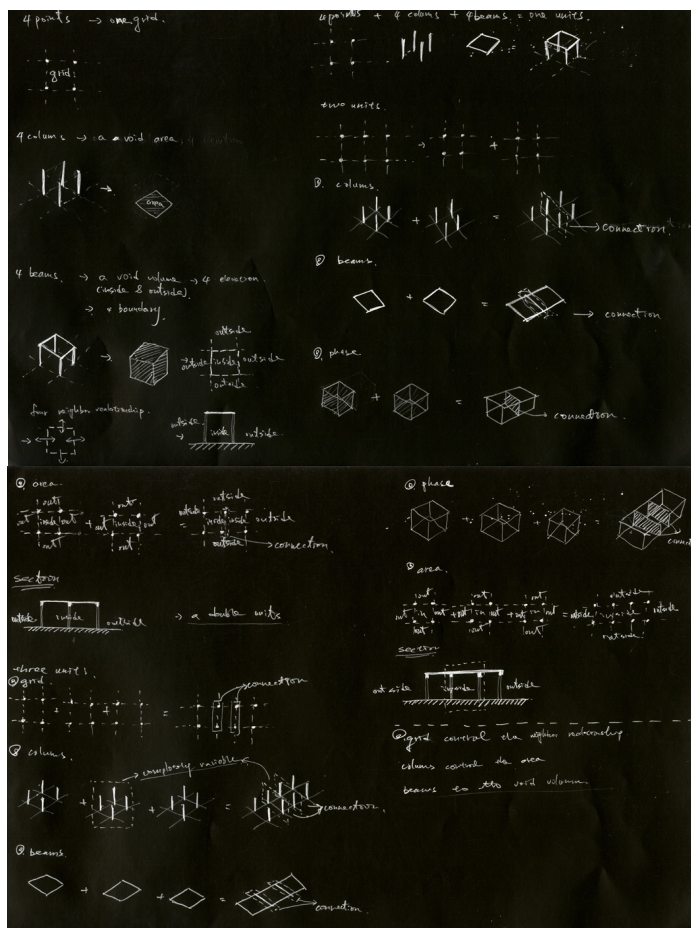 4 points → one grid.
grid
4 colums → a void area
area
4 beams. → a void volume → 4 elevation.
(inside & outside).
→ 4 boundary.
outside
outside inside outside
outside
four neighbor relationship.
outside
→ inside outside.
4 points + 4 colums + 4 beams = one units.
two units.
→ +
colums.
+ = → connection
beams.
+ = → connection
phase
+ = → connection.
area.
out out outside
out inside out + out inside out = outside inside inside outside
out out outside → connection.
section
outside inside outside → a double units
three units.
grid → connection
+ + =
colums.
variable
+ + = → connection.
beams.
+ + = connection.
phase
+ + =
area.
out out out outside
out in out + out in out + out in out = outside inside outside
out out out outside
section
outside inside outside
grid control the neighbor
colums control the area
beams to the void volumn